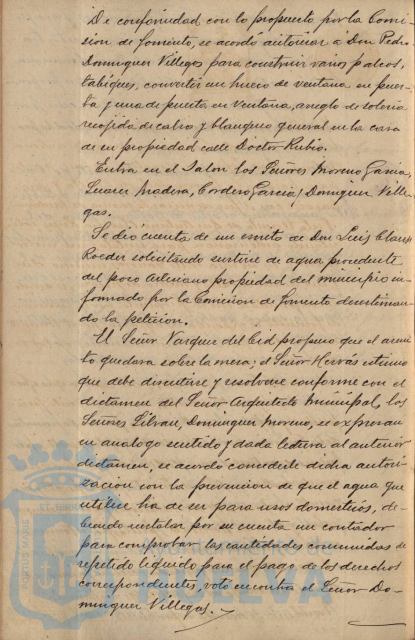 De conformidad con lo propuesto por la Comi-
sion de fomento, se acordó autorizar á Don Pedro
Dominguez Villegas para construir varios
tabiques, convertir un hueco de ventana en puer-
ta y una de puerta en ventana, arreglo de soleria
recojida de calvo y blanqueo general en la casa
de su propiedad calle Doctor Rubio.
Entran en el Salon los Señores Moreno Garcia,
Suarez Madera, Cordero Garcia y Dominguez Ville-
gas.
Se dió cuenta de un escrito de Don Luis Clauss
Roeder solicitando surtirse de agua procedente
del pozo Artesiano propiedad del municipio in-
formado por la Comision de fomento desestiman-
do la peticion.
El Señor Vazquez del Cid propuso que el asun-
to quedara sobre la mesa; el Señor Hervás estimo
que debe discutirse y resolverse conforme con el
dictamen del Señor Arquitecto Municipal, los
Señores Dominguez Moreno, se expresan
en analogo sentido y dada lectura al anterior
dictamen, se acordó concederle dicha autori-
zacion con la prevencion de que el agua que
utilice ha de ser para usos domesticos, de-
biendo instalar por su cuenta un contador
para comprobar las cantidades consumidas de
repetido liquido para el pago de los derechos
correspondientes, votó en contra el Señor Do-
minguez Villegas.
PORTUS MARIS
HUELVA